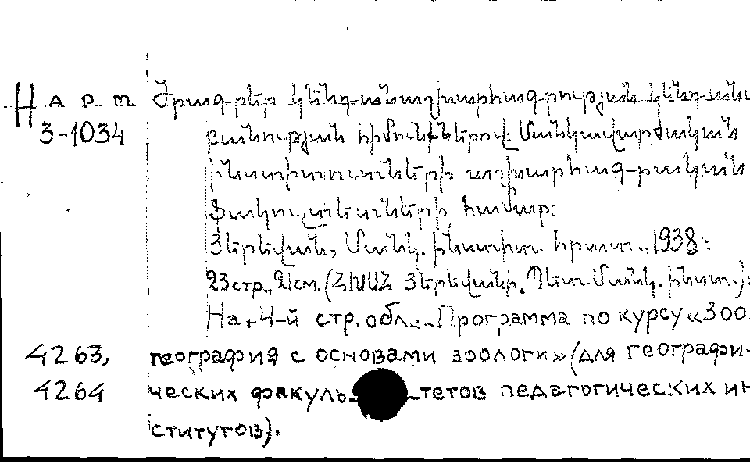 Нарт Ծրագրեր կենդանաաշխարհագրության կենդանա
3-1034 բանության հիմունքներով Մանկավարժական
ինստիտուտների աշխարհագրական
ֆակուլտետների համար:
Յերեվան, Մանկ. ինստիտ. հրատ., 1938:
23 стр., 21 см. (ՀԽՍՀ Յերեվանի Պետ. Մանկ. ինստ.):
На 4-й стр. обл.: Программа по курсу «Зоо-
4263, география с основами зоологи» (для географи-
4264 ческих факуль-тетов педагогических ин
ститутов).